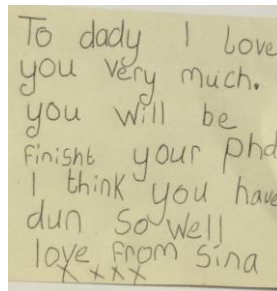 To dady I love
you very much.
you will be
finisht your phd
I think you have
dun so well
love from Sina
xxxx